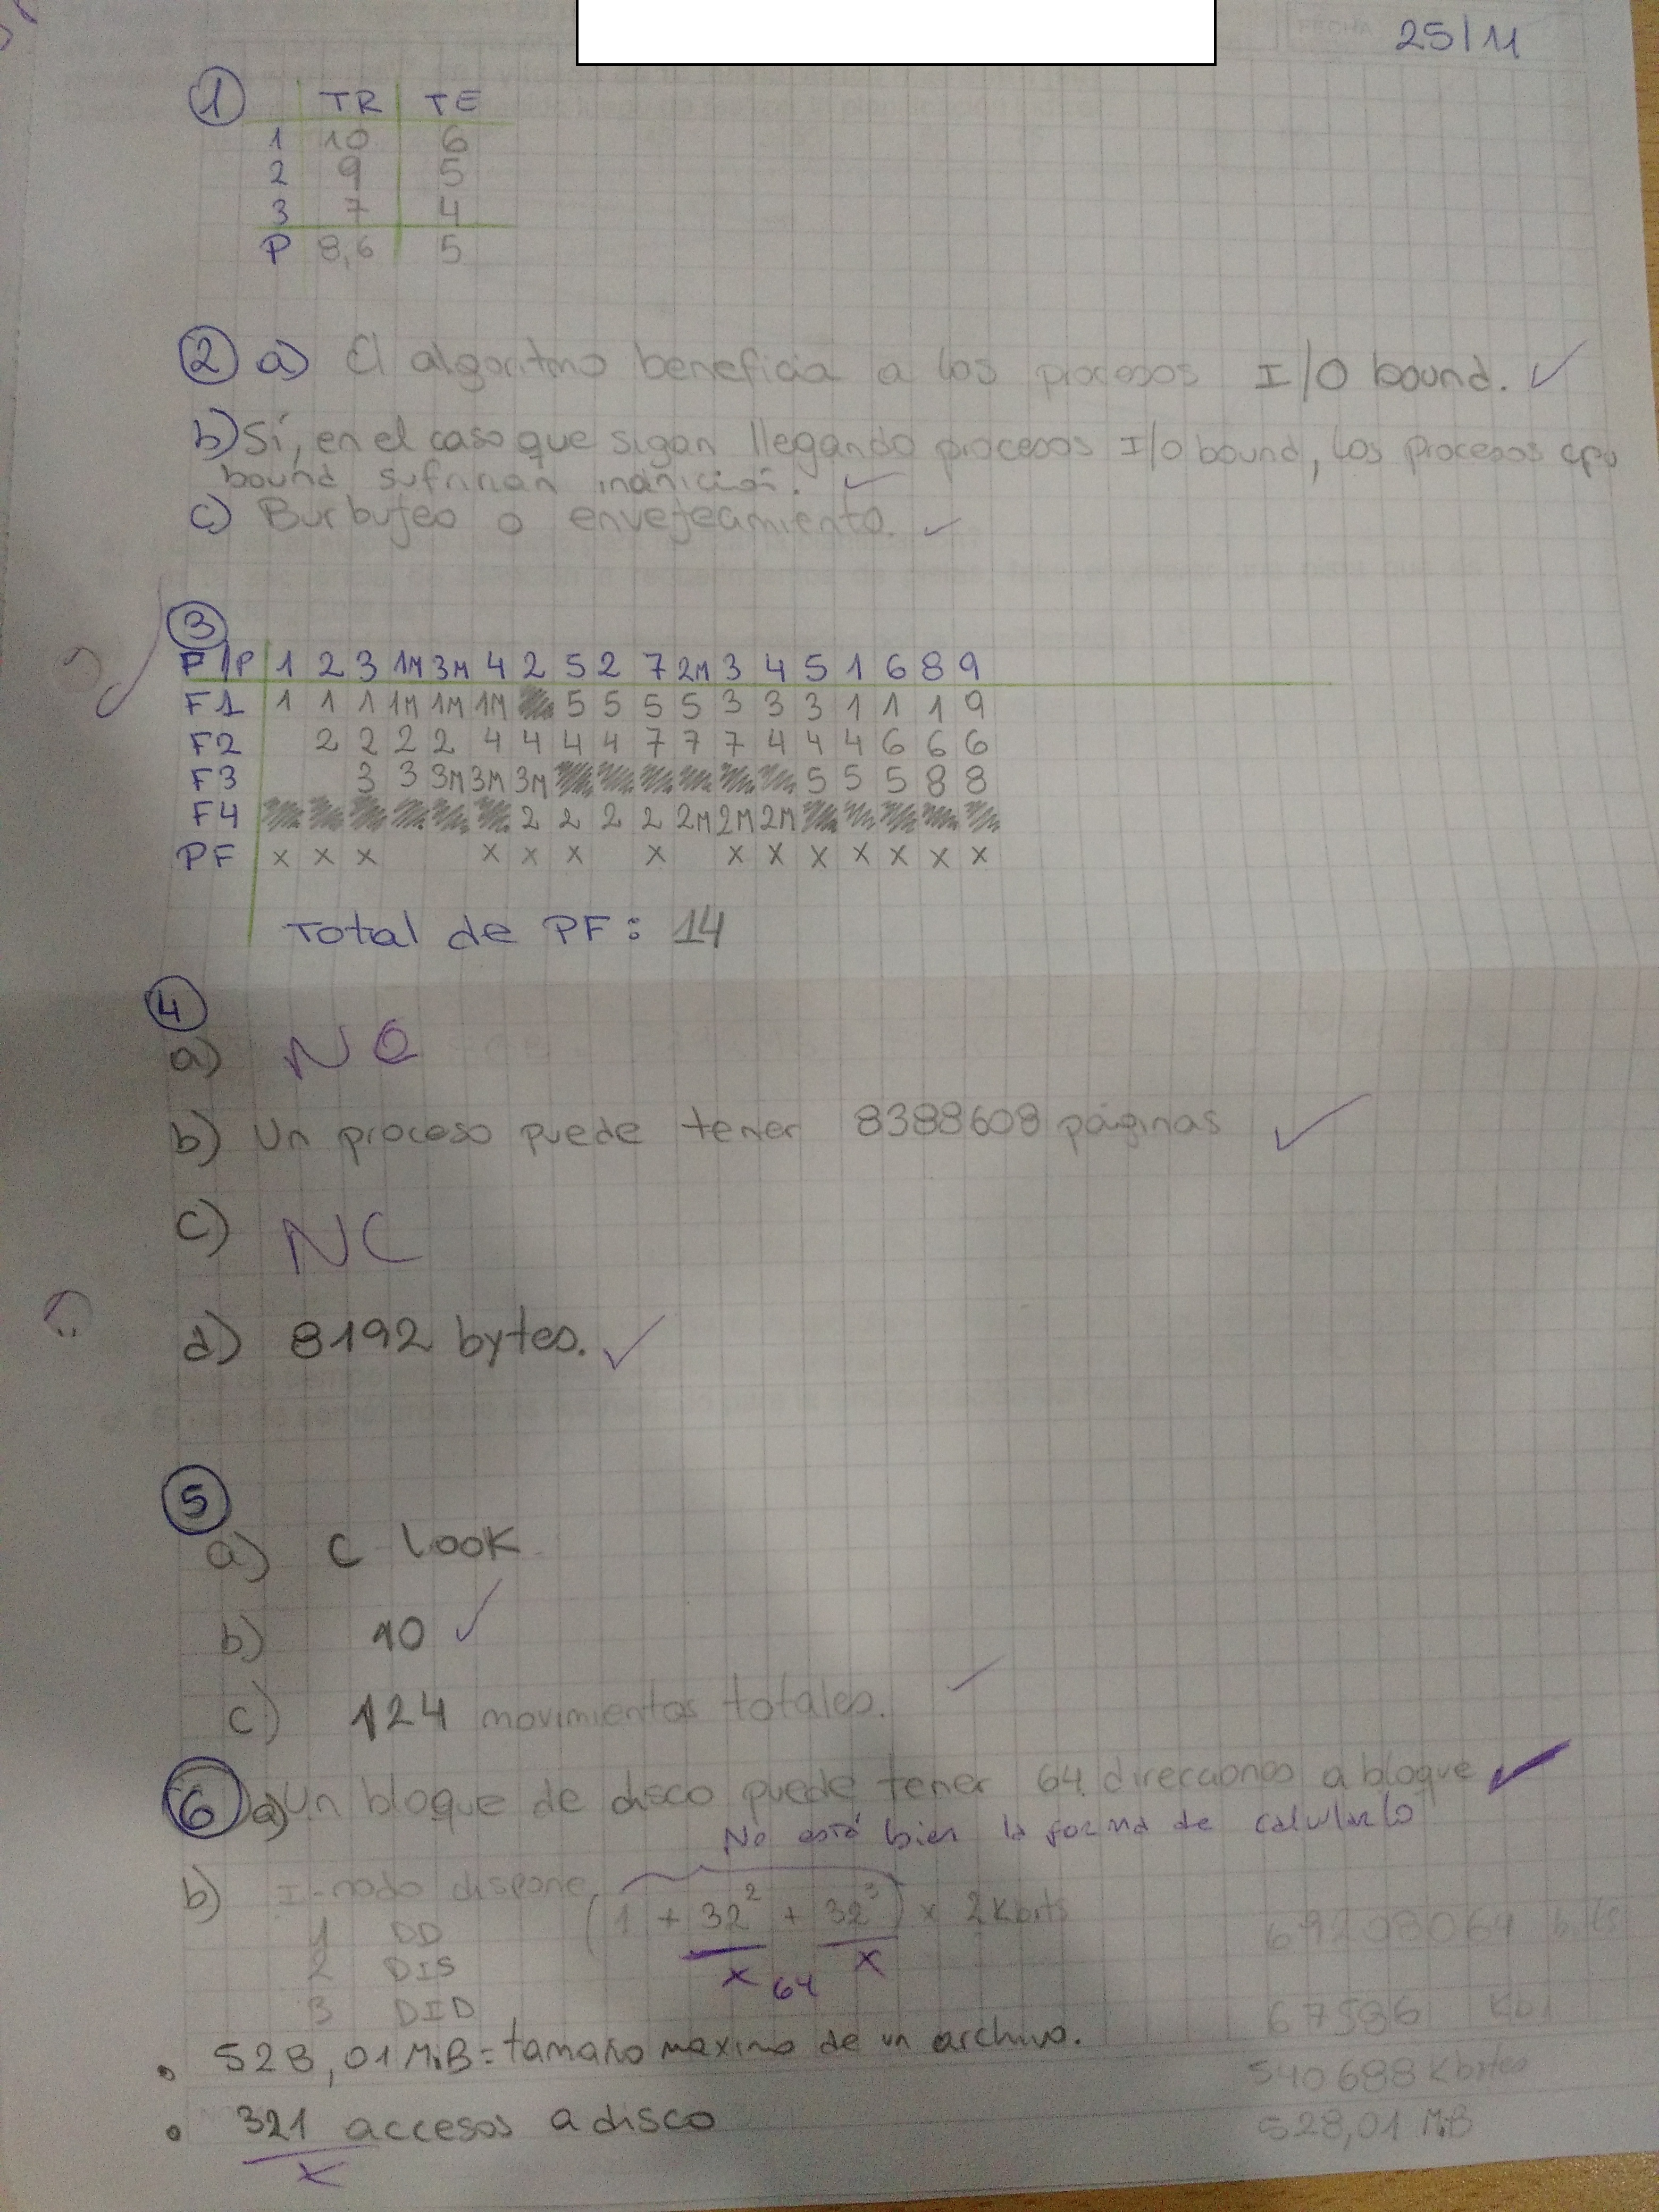 25/11
① TR TE
1 10 6
2 9 5
3 7 4
P 8,6 5
② a) El algoritmo beneficia a los procesos I/O bound. ✓
b) Sí, en el caso que sigan llegando procesos I/O bound, los procesos cpu
bound sufririan inanición. ✓
c) Burbujeo o envejecamiento. ✓
③
F/P 1 2 3 1M 3M 4 2 5 2 7 2M 3 4 5 1 6 8 9
F1 1 1 1 1M 1M 1M 5 5 5 5 3 3 3 1 1 1 9
F2 2 2 2 2 4 4 4 4 7 7 7 4 4 4 6 6 6
F3 3 3 3M 3M 3M 5 5 5 8 8
F4 2 2 2 2 2M 2M 2M
PF x x x x x x x x x x x x x x
Total de PF: 14
④
a) NC
b) Un proceso puede tener 8388608 páginas ✓
c) NC
d) 8192 bytes. ✓
⑤
a) C look
b) 10 ✓
c) 124 movimientos totales. ✓
⑥ a) Un bloque de disco puede tener 64 direcciones a bloque ✓
No está bien la forma de calularlo
b) I-nodo dispone (1 + 32² + 32³) x 2 Kbits
x 64 x
1 DD
2 DIS
3 DID
69208064 bits
67586 Kb
• 528,01 MiB = tamaño maximo de un archivo.
540688 Kbites
• 321 accesos a disco
x
528,01 MiB